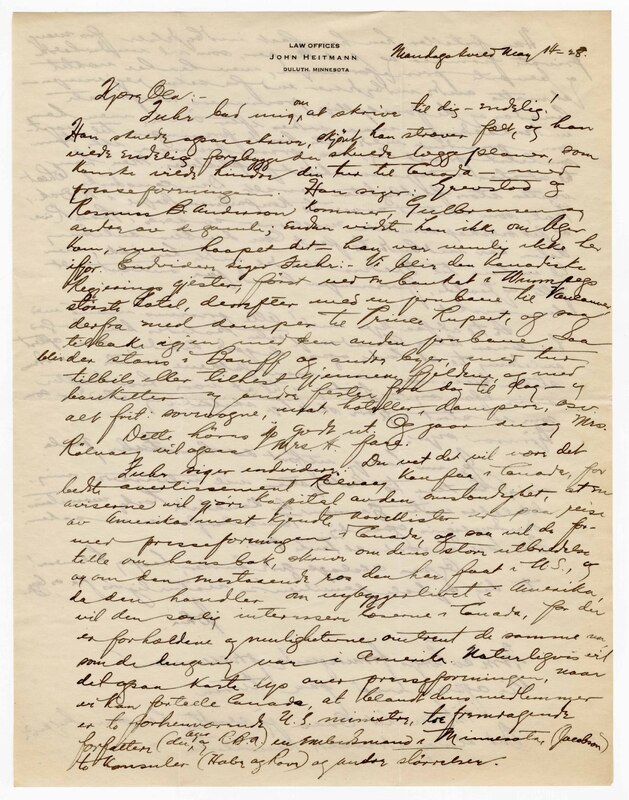 LAW OFFICES
JOHN HEITMANN
DULUTH, MINNESOTA
Mandagskveld May 14-28.
Kjære Ola:-
Fuhr bad mig om, at skrive til dig - endelig!
Han skulde ogsaa skrive, skjønt han strever fælt, og han
vilde endelig forebygge du skulde lægge planer, som
kanske vilde hindre din tur til Canada - med
presseforeningen. Han siger: Grevstad og
Rasmus B. Anderson kommer, Gulbrandsen og
andre av signende; endnu vidste han ikke om Ager
kom, men haapet det - han var nemlig ikke her
ifjor. Endvidere siger Fuhr:- Vi blir den kanadiske
Regjerings gjester, først ved en banket i Winnipegs
største hotel, derefter med en jernbane til Vancouver
derfra med damper til Prince Rupert, og saa
tilbake igjen med den anden jernbane. Saa
blir der stans i Banff og andre byer, med tur
tilbils eller tilhest gjennem fjeldene og med
banketter og andre fester fra dag til dag - og
alt frit: sovevogne, mat, hoteller, dampere, osv.
Dette høres jo godt ut. Og gaar du og Mrs.
Rölvaag vil ogsaa Mrs. H. fare.
Fuhr siger endvidere: Du vet det vil være det
bedste avertissement Rølvaag kan faa i Canada, for
aviserne vil gjøre kapital av den omstendighet, at en
av Amerikas mest kjendte novellister er paa reise
med presseforeningen i Canada, og saa vil de for-
telle om hans bok, skrive om dens store utbredelse
og om den mestaaende ros den har faat i U.S., og
da den handler om nybyggerlivet i Amerika,
vil den særlig interessere læserne i Canada, for der
er forholdene og mulighederne omtrent de samme nu
som de engang var i Amerika. Naturligvis vil
det ogsaa kaste lys over presseforeningen, naar
vi kan fortelle Canada, at blandt dens medlemmer
er to forhenværende U.S. ministre, tre fremragende
forfattere (du, Ager og R.B.A) en embedsmand i Minnesota, (Jacobson)
to konsuler (Hobe og Hove) og andre størrelser.